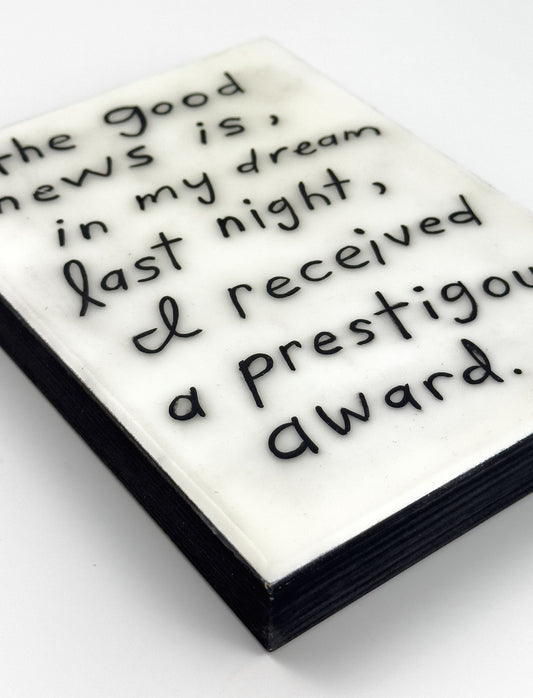 the good
news is,
in my dream
last night,
I received
a prestigou
award.